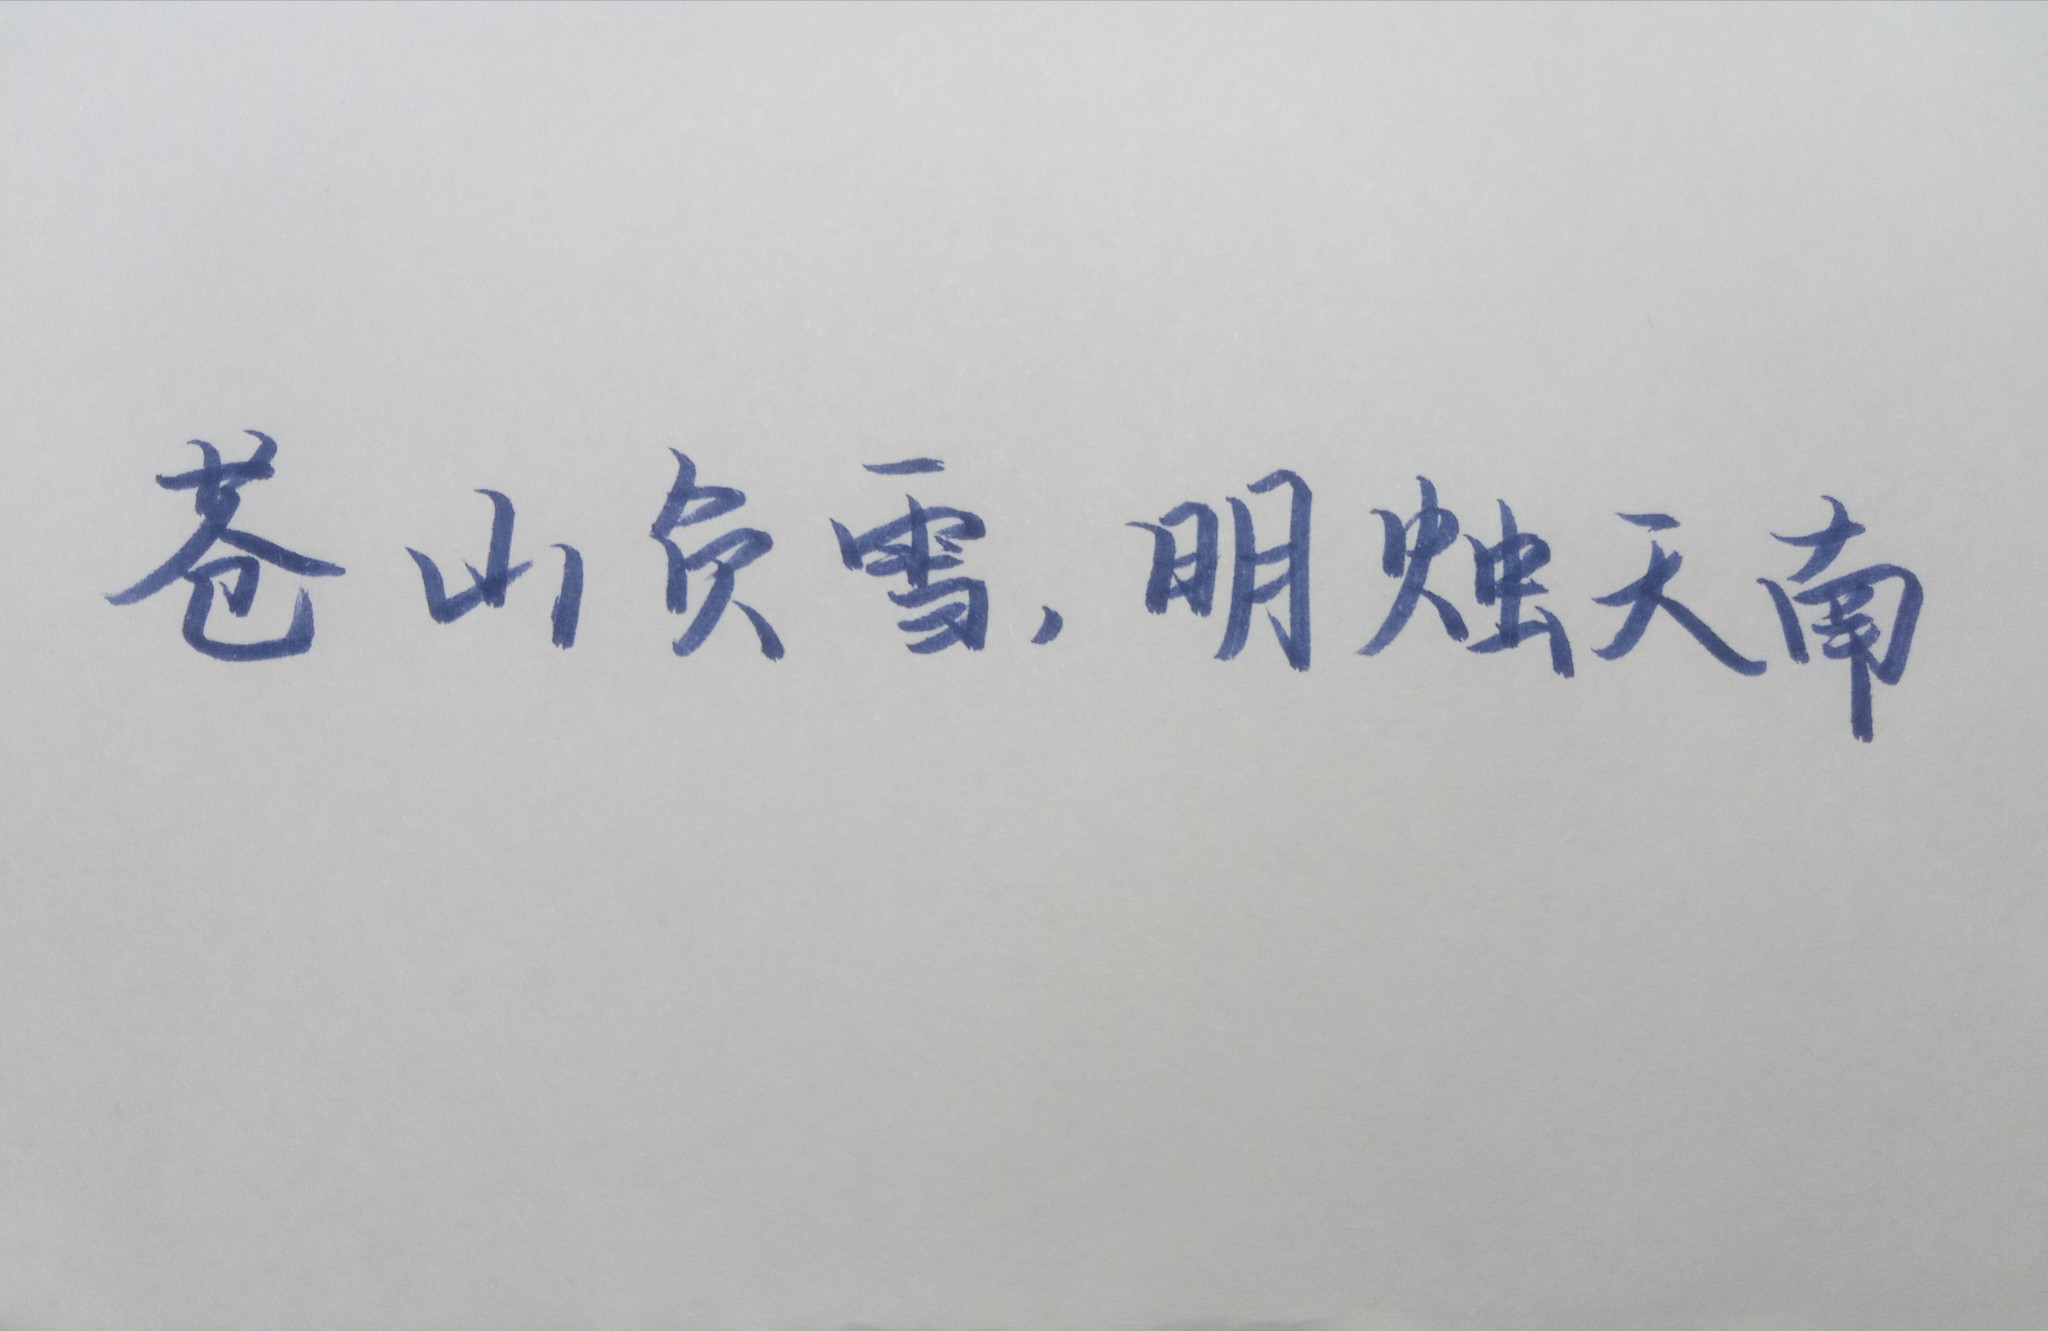 苍山负雪，明烛天南